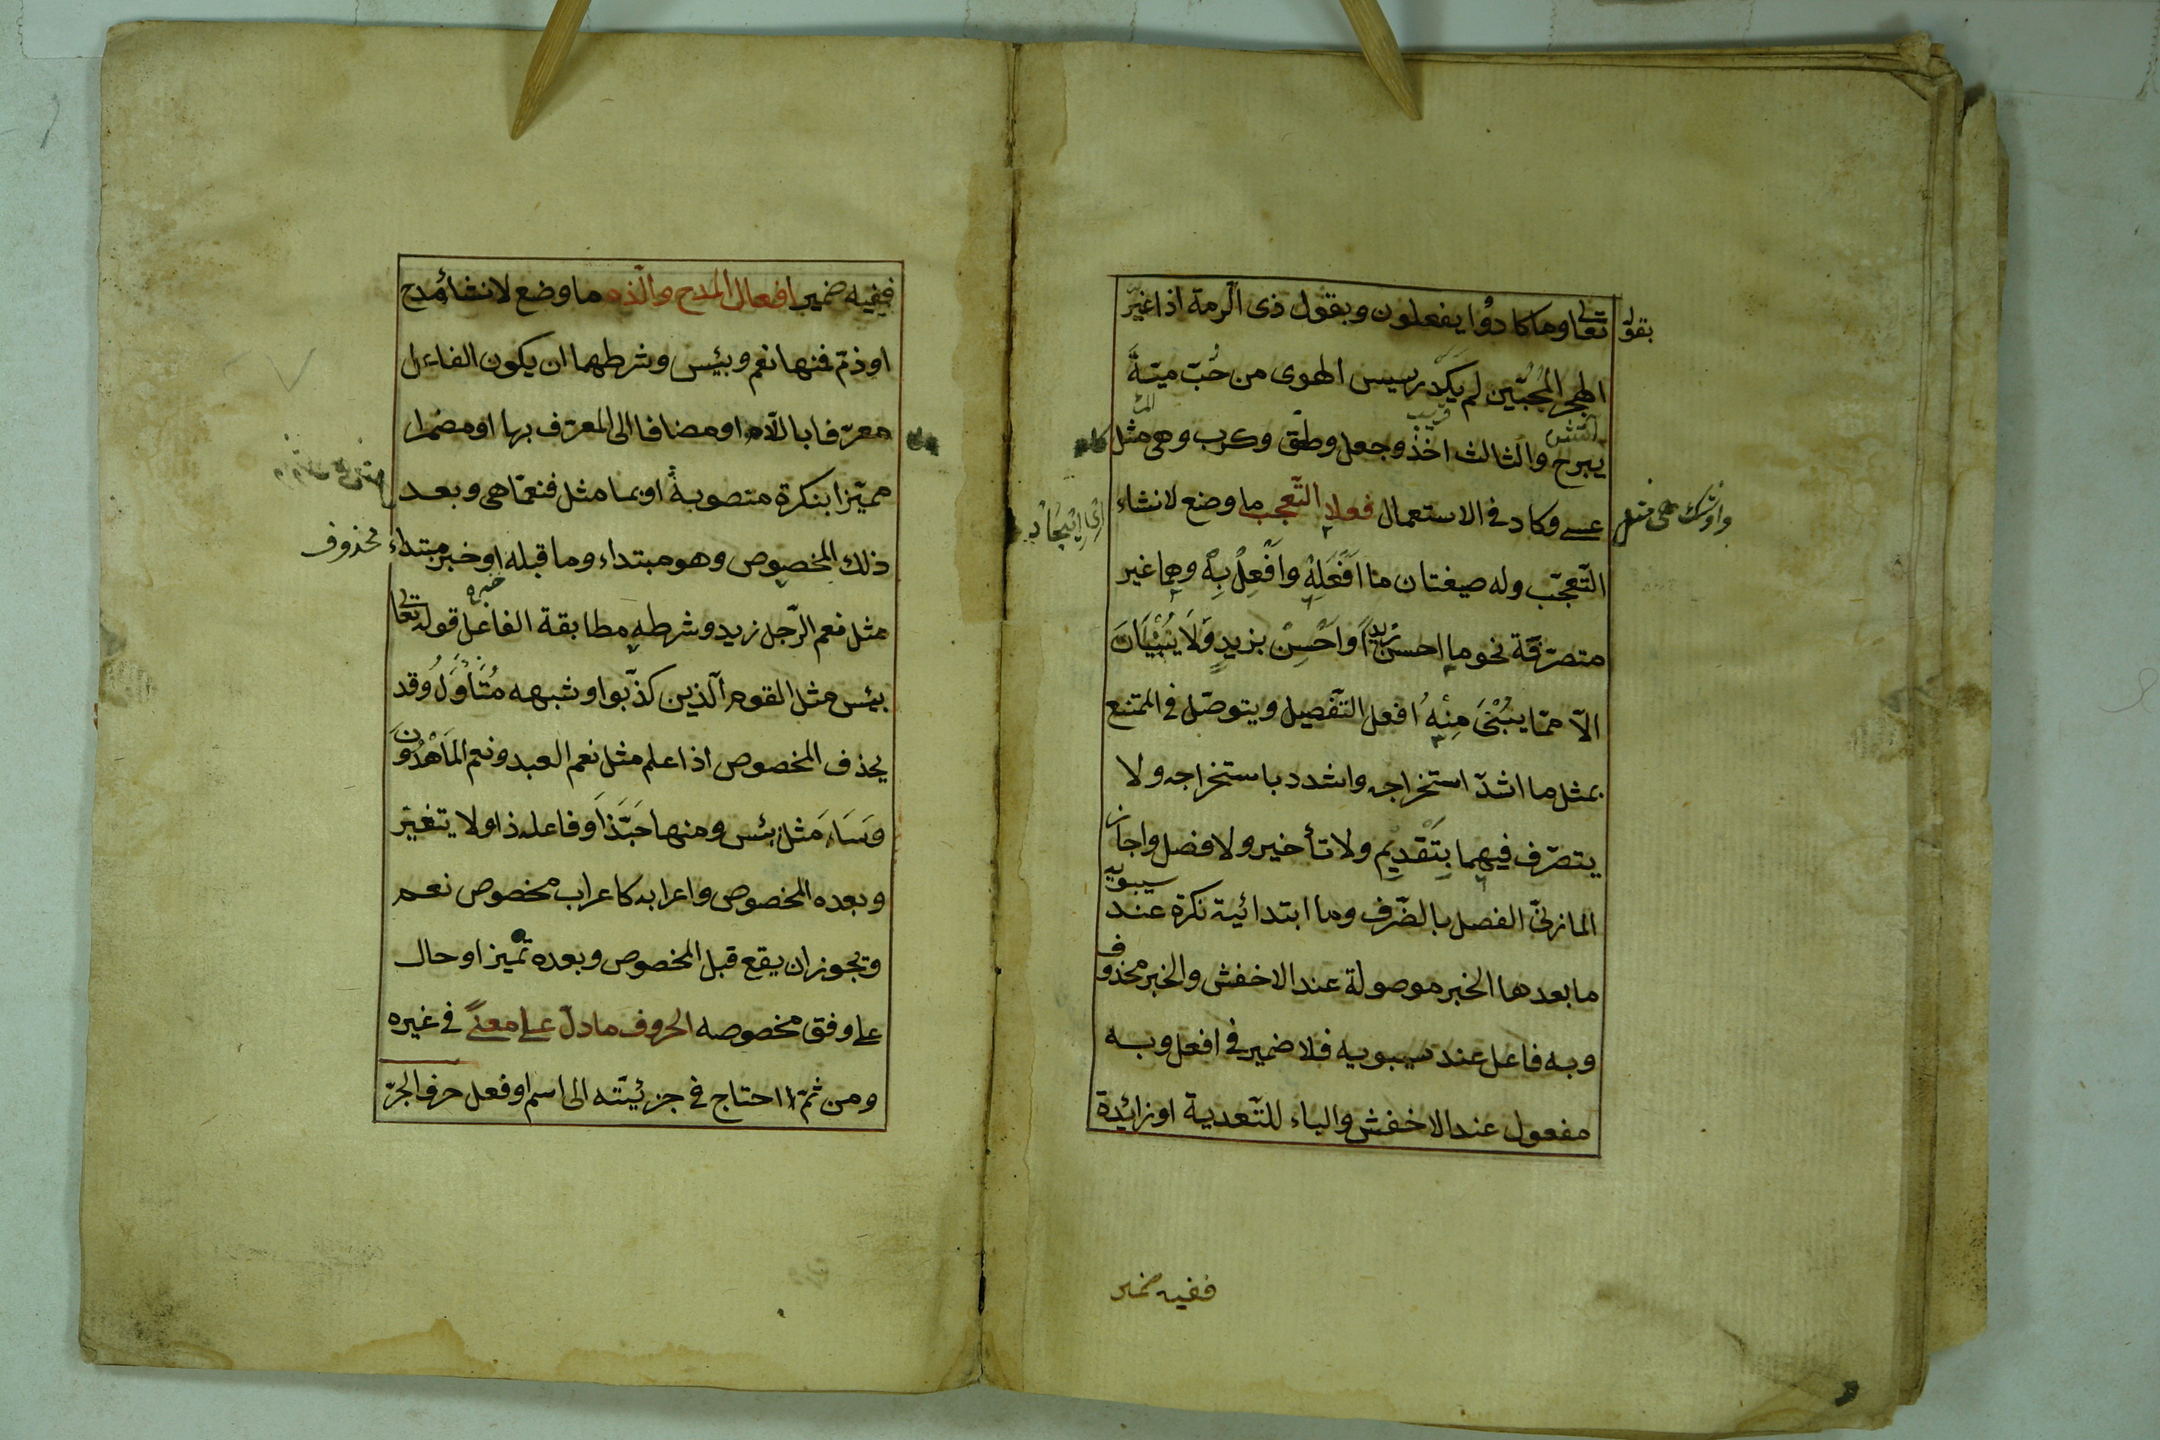 بقوله تعالى وما كادوا يفعلون وبقول ذى الرمة اذا غيّر
الهجر المحبّين لم يكد رسيس الهوى من حُبّ ميّةَ
يبرح والثالث اخذ وجعل وطفق وكرب وهى مثل
واوشك هى مثل
عسى وكاد فى الاستعمال فعلا التّعجب ما وضع لانشاء
اى ايجاد
التّعجّب وله صيغتان ما اَفْعَلَهُ وأَفْعِلْ بِهِ وهما غير
متصرّفة نحو ما احسن زيدًا وَاَحْسِنْ بزيدٍ وَلَا يُبْنَيَانَ
الّا ممّا يُبْنىَ مِنْهُ افعل التّفضيل ويتوصّل فى الممتنع
بمثل ما اشدّ استخراجه واشدد باستخراجه ولا
يتصرّف فيهما بِتَقْدِيمٍ ولا تأخير ولا فصل واجاز
المازنىّ الفصل بالظّرف وما ابتدائية نكرة عند سيبويه
ما بعدها الخبر موصولة عند الاخفش والخبر محذوف
وبه فاعل عند سيبويه فلا ضمير فى افعل وبه
مفعول عند الاخفش والباء للتّعدية او زائدة
ففيه ضمير
ففيه ضمير افعال المدح والذّم ما وضع لانشاء مدح
او ذمّ فمنها نعم وبئس وشرطهما ان يكون الفاعل
معرّفا باللّام او مضافا الى المعرّف بها او مضمرا
مميّزا بنكرة منصوبةٍ او بما مثل فنعمّا هى وبعد
ذلك المخصوص وهو مبتداء وما قبله خبره او خبر مبتداء محذوف
مثل نعم الرّجل زيد وشرطه مطابقة الفاعل قوله تعالى
بئس مثل القوم الّذين كذّبوا وشبهه مُتَأَوَّلُ وقد
يحذف المخصوص اذا علم مثل نعم العبد ونعم الْمَاهْدُونَ
وَسَاءَ مثل بئس ومنها حَبَّذَا وفاعله ذا ولا يتغيّر
وبعده المخصوص واعرابه كاعراب مخصوص نعم
ويجوز ان يقع قبل المخصوص وبعده تميز او حال
على وفق مخصوصه الحروف ما دلّ على معنًى فى غيره
ومن ثمّ احتاج فى جزئيّته الى اسم او فعل حرف الجرّ